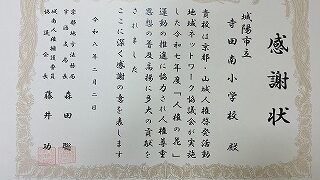 感謝状
城陽市立
寺田南小学校 殿
貴校は京都・山城人権啓発活動
地域ネットワーク協議会が実施
した令和七年度「人権の花」
運動の推進に協力され人権尊重
思想の普及高揚に多大の貢献を
されました
ここに深く感謝の意を表します
令和八年二月二日
京都地方法務局
宇治支局長 森田 聡
城南人権擁護委員
協議会会長 藤井 功